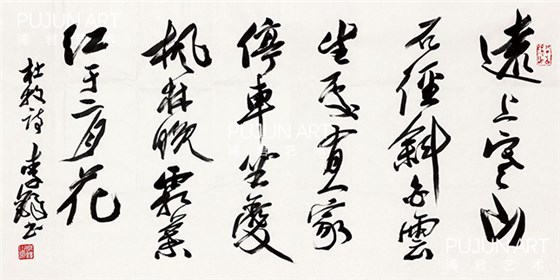 遠上寒山
石徑斜白雲
生處有人家
停車坐愛
楓林晚霜葉
红于二月花
杜牧诗 李书
PUJUN ART
PUJUN ART
PUJUN ART